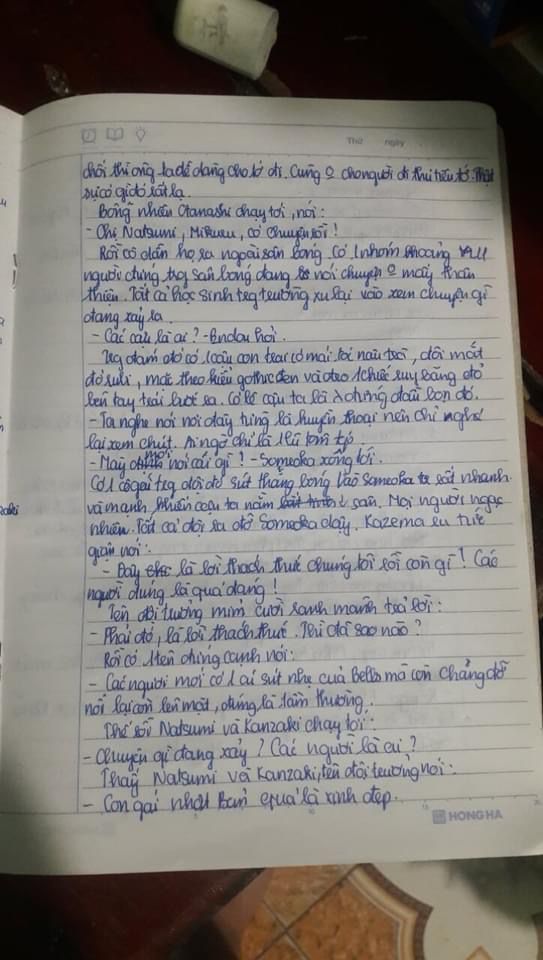 Thứ ngày
chối thì ông ta dễ dàng cho tớ đi. Cũng o cho người đi thủ tiêu tớ. Thật
sự có gì đó rất lạ.
Bỗng nhiên Otanashi chạy tới, nói:
- Chị Natsumi, Mikuru, có chuyện rồi!
Rồi cô dẫn họ ra ngoài sân bóng. Có 1 nhóm khoảng
người đứng trg sân bóng đang nói chuyện o mấy thân
thiện. Tất cả học sinh trg trường xu lại vào xem chuyện gì
đang xảy ra.
- Các cậu là ai? - Endou hỏi.
Trg đám đó có 1 cậu con trai có mái tóc nâu trà, đôi mắt
đỏ ruli, mặc theo kiểu gothic đen và đeo 1 chiếc ruy băng đỏ
bên tay trái lướt ra. Có lẽ cậu ta là đứng đầu bọn đó.
- Ta nghe nói nơi đây từng là huyền thoại nên chỉ nghé
lại xem chút. Ai ngờ chỉ là 1 lũ tóm tép.
- Mày nói cái gì? - Someoka xông tới.
Có 1 cô gái trg đội đó sút thẳng bóng vào Someoka rất nhanh
và mạnh, khiến cậu ta nằm sàn. Mọi người ngạc
nhiên. Tất cả đội ra đỡ Someoka dậy, Kazema ru tức
giận nói:
- Đây là lời thách thức chúng tôi rồi còn gì! Các
người đúng là quá đáng!
Tên đội trưởng mỉm cười ranh mãnh trả lời:
- Phải đó, là lời thách thức. Thì đã sao nào?
Rồi có 1 tên đứng cạnh nói:
- Các người mới có 1 cái sút nhẹ của Bella mà còn chẳng đỡ
nổi lại còn lên mặt, đúng là tầm thường.
Thế rồi Natsumi và Kanzaki chạy tới:
- Chuyện gì đang xảy? Các người là ai?
Thấy Natsumi và Kanzaki, tên đội trưởng nói:
- Con gái Nhật Bản quả là xinh đẹp.
HONG HA